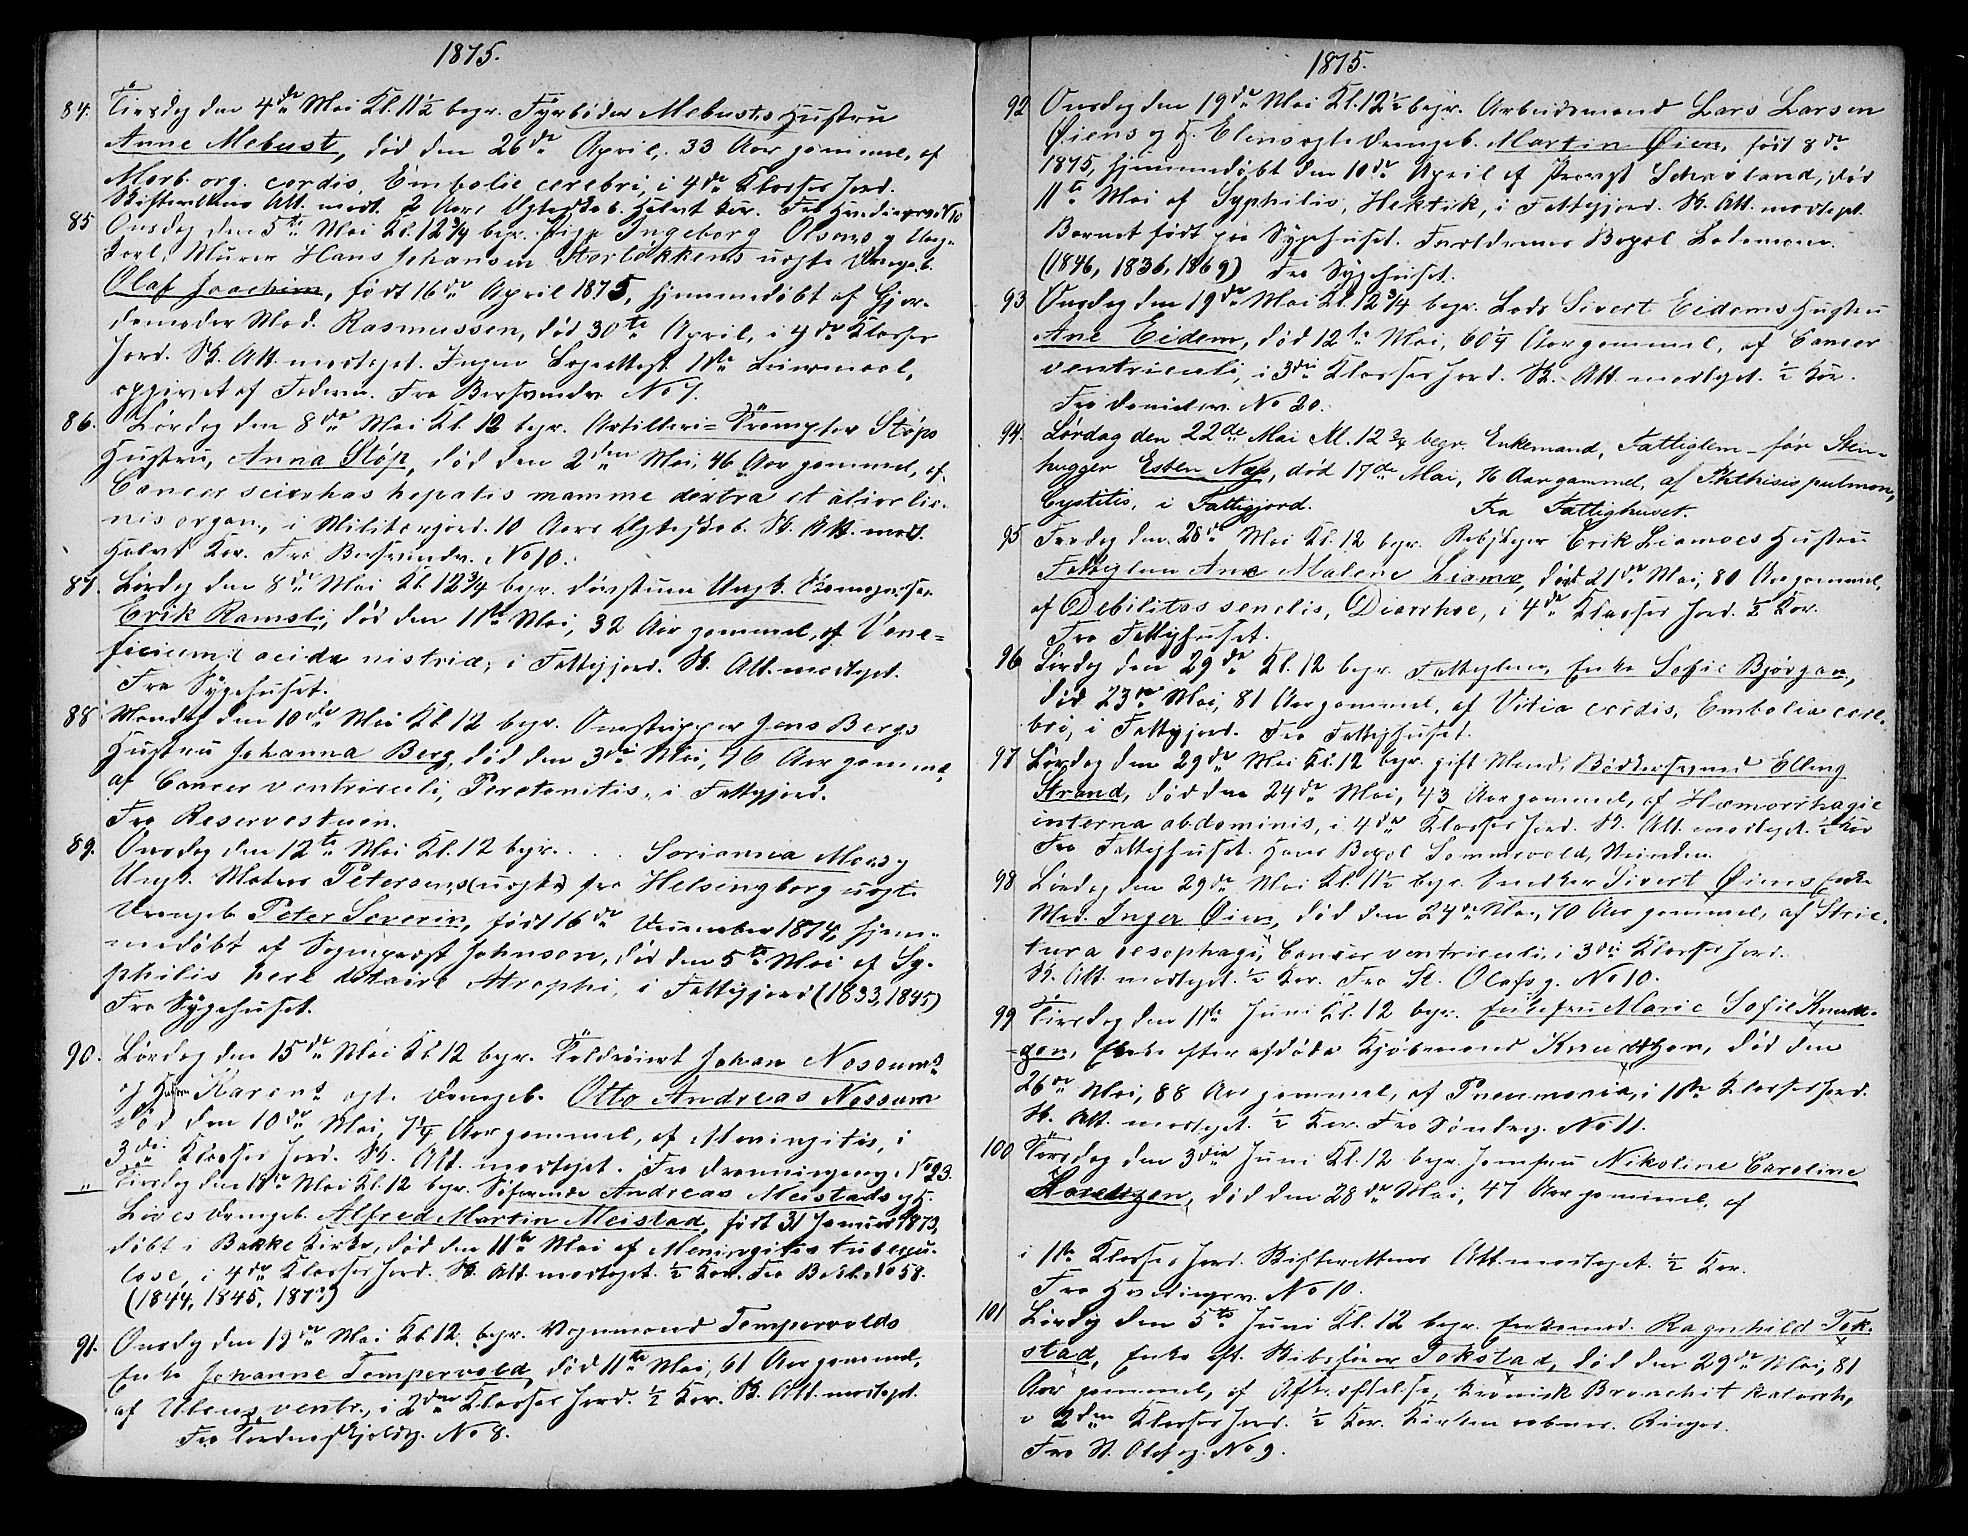 1875.
84. Tirsdag den 4de Mai Kl. 11½ begr. Fyrbøder Mebusts Hustru
Anne Mebust, død den 26de April, 33 Aar gammel, af
Morb. org. cordis, Embolie cerebri, i 4de Klasses Jord.
Skifterettens Att. modt. 2 Aars Ægteskab. Halvt Kor. Fra No 10
85 Onsdag den 5te Mai Kl. 12¾ begr. Pige Ingeborg Olsens og Ung-
karl, Murer Hans Johansen Storløkkens uægte Drengeb.
Olaf Joachim, født 16de April 1875, hjemmedøbt af Gjor-
demoder Mad. Rasmussen, død 30te April, i 4de Klasses
Jord. Sk. Att. modtaget. Ingen Lægeattest. 1ste Leiermaal,
opgivet af Faderen. Fra Bersvendv. No 7.
86. Lørdag den 8de Mai Kl. 12 begr. Artilleri-Trompeter Støps
Hustru, Anna Støp, død den 2den Mai, 46 Aar gammel, af
Cancer scirrhas hepatis mamme dextra et alior lie-
nis organ., i Militærjord. 10 Aars Ægteskab. Sk. Att. modt.
Halvt Kor. Fra Bersvendv. No 10.
87. Lørdag den 8de Mai Kl. 12¾ begr. Ungk.
Erik Ramsli, død den 1ste Mai, 32 Aar gammel, af Vene-
ficium acida nistriæ, i Fattigjord. Sk. Att. modtaget.
Fra Sygehuset.
88. Mandag den 10de Mai Kl. 12 begr. Jens Bergs
Hustru Johanna Berg, død den 3die Mai, 46 Aar gammel,
af Cancer ventriculi, Peretonitis, i Fattigjord.
Fra Reservestuen.
89. Onsdag den 12te Mai Kl. 12 begr. . . . Sorianna Moes og
Ungk. Matros Petersens (uægte) fra Helsingborg uægte
Drengeb. Peter Severin, født 16de December 1874, hjem-
medøbt af Sogneprest Johnson, død den 5te Mai af Sy-
philis hereditaire Atrophi, i Fattigjord (1833, 1845)
Fra Sygehuset.
90. Lørdag den 15de Mai Kl. 12 begr. Toldrorert Johan Nossums
og Hustru Karens ægte Drengeb. Otto Andreas Nossum
død den 10de Mai, 7¼ Aar gammel, af Meningitis, i
3die Klasses Jord. Sk. Att. modtaget. Fra Dronningensg. No 23.
" Tirsdag den 18de Mai Kl. 12 begr. Andreas Meistads og H.
Lives Drengeb. Alfred Martin Meistad, født 31 Januar 1873,
døbt i Bakke Kirke, død den 11te Mai af Meningitis tubercu-
lose, i 4de Klasses Jord. Sk. Att. modtaget. ½ Kor. Fra Bakl. No 58.
(1844, 1845, 1873)
91. Onsdag den 19de Mai Kl. 12. begr. Vognmand Tempervolds
Enke Johanne Tempervold, død 11te Mai, 61 Aar gammel,
af Ulcus ventr., i 2den Klasses Jord. ½ Kor. Sk. Att. modtaget.
Fra Tordenskjoldsg. No 8.
1875.
92 Onsdag den 19de Mai Kl. 12½ begr. Arbeidsmand Lars Larsen
Øiens og H. Elens ægte Drengeb. Martin Øien, født 8de
1875, hjemmedøbt den 10de April af Provst Schavland, død
11te Mai af Syphilis, Hektik, i Fattigjord. Sk. Att. modtaget.
Barnet født paa Sygehuset. Forældrenes Bopæl Lademoen.
(1846, 1836, 1869) Fra Sygehuset.
93 Onsdag den 19de Mai Kl. 12¾ begr. Lods Sivert Eidems Hustru
Ane Eidem, død 12te Mai, 60¼ Aar gammel, af Cancer
ventriculi, i 3die Klasses Jord. Sk. Att. modtaget. ½ Kor.
Fra No 20.
94. Lørdag den 22de Mai Kl. 12¾ begr. Enkemand, Fattiglem - før Sten-
hugger Esten Næs, død 17de Mai, 76 Aar gammel, af Phthisis pulmon,
Cystitis, i Fattigjord. Fra Fattighuset.
95 Fredag den 28de Mai Kl. 12 begr. Rebslager Erik Liamoes Hustru
Fattiglem Ane Malene Liamo, død 21de Mai, 80 Aar gammel,
af Debilitas senelis, Diarrhoe, i 4de Klasses Jord. ½ Kor.
Fra Fattighuset.
96 Lørdag den 29de Kl. 12 begr. Fattiglem, Enke Sofie Bjørgan,
død 23de Mai, 81 Aar gammel, af Vitia cordis, Embolia cere-
bri, i Fattigjord. Fra Fattighuset.
97 Lørdag den 29de Mai Kl. 12 begr. gift Mand, Bødkersvend Elling
Strand, død den 24de Mai, 43 Aar gammel, af Hæmorrhagie
interna abdominis, i 4de Klasses Jord. Sk. Att. modtaget. ½ Kor
Fra Fattighuset. Hans Bopæl Sommervold, Strinden.
98 Lørdag den 29de Mai Kl. 11½ begr. Snedker Sivert Øiens Enke
Mad. Inger Øien, død den 24de Mai, 70 Aar gammel, af Stric-
tura oesophagi, Cancer ventriculi, i 3die Klasses Jord.
Sk. Att. modtaget. ½ Kor. Fra St. Olafsg. No 10.
99 Tirsdag den 1ste Juni Kl. 12 begr. Enkefru Marie Sofie Knudt-
-zon, Enke efter afdøde Kjøbmand Knudtzon, død den
26de Mai, 88 Aar gammel, af Pneumonia, i 1ste Klasses Jord.
Sk. Att. modtaget. ½ Kor. Fra Søndreg. No 11.
100 Torsdag den 3die Juni Kl. 12 begr. Jomfru Nikoline Caroline
Lorentzen, død den 28de Mai, 47 Aar gammel, af
i 1ste Klasses Jord. Skifterettens Att. modtaget. ½ Kor.
Fra No 10.
101 Lørdag den 5te Juni Kl. 12 begr. Enkemad. Ragnhild Tok-
stad, Enke eft. Skibsfører Tokstad, død den 29de Mai, 81
Aar gammel, af Afkræftelse, kronisk Bronchit katarrh,
i 2den Klasses Jord. ½ Kor. Kirken aabnes. Ringes.
Fra St. Olafsg. No 9.